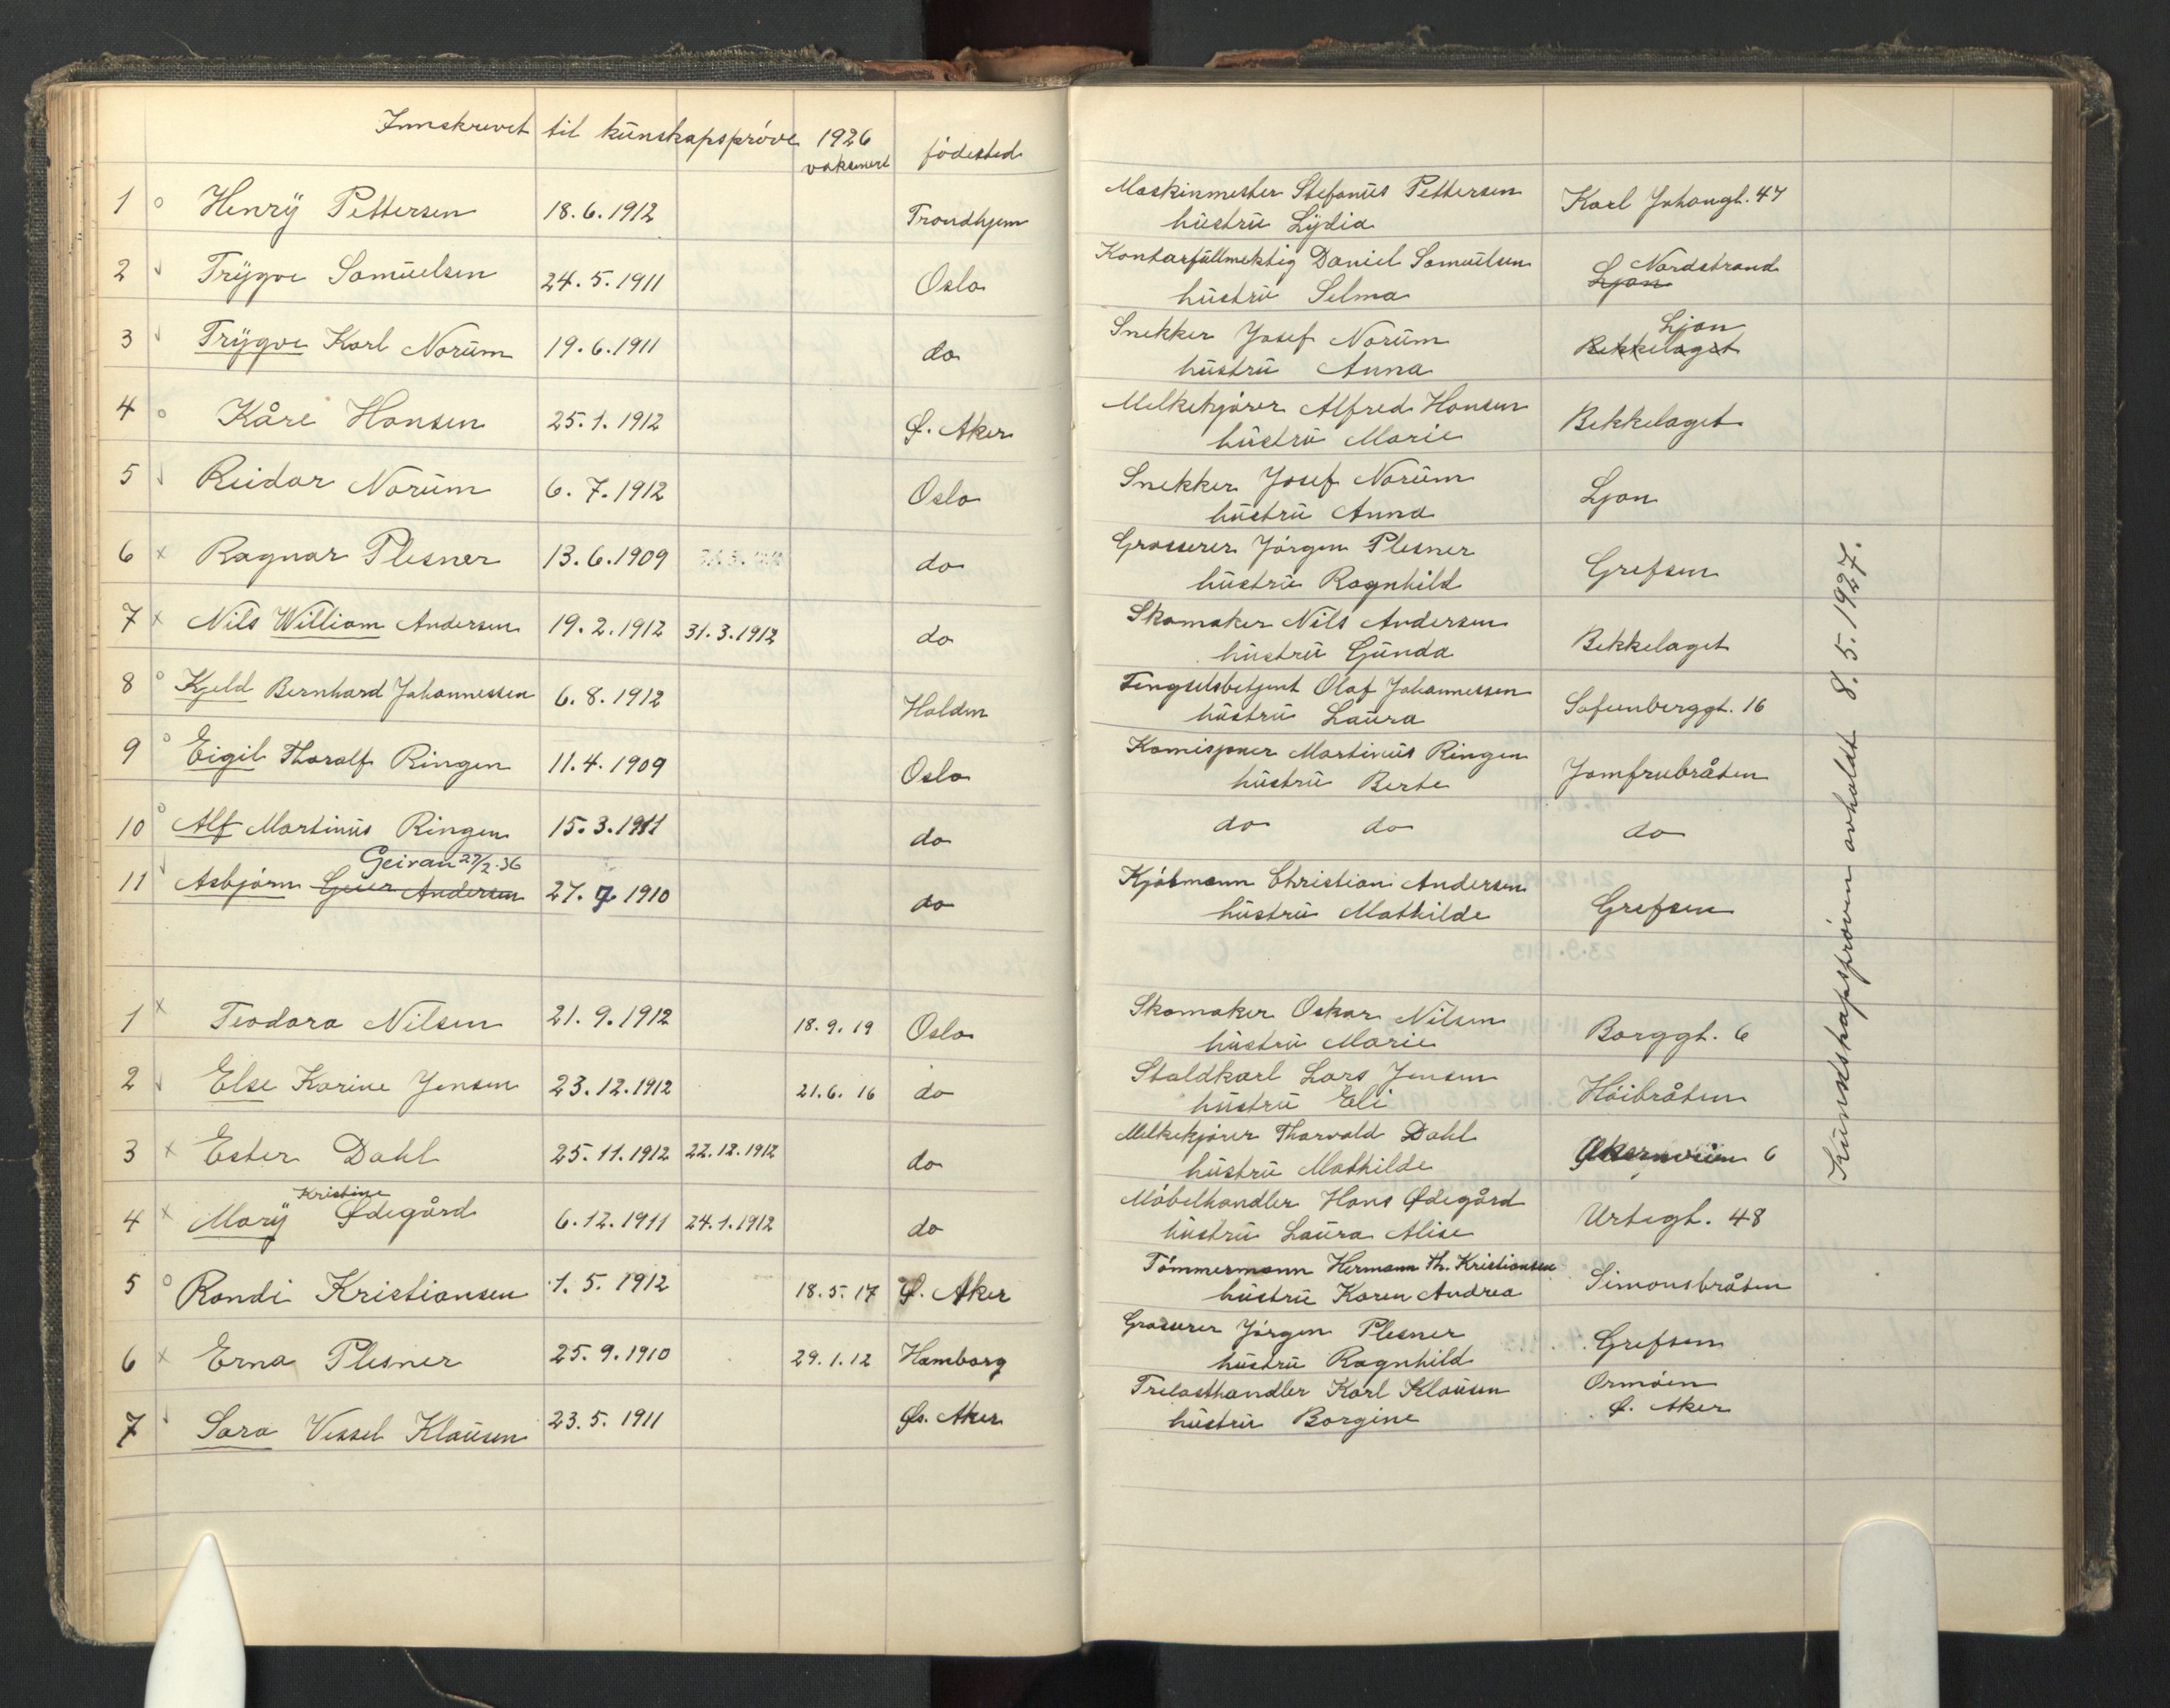 Innskrevet til kunskapsprøve 1926
vaksinert fødested
1 o Henry Pettersen 18.6.1912 Trondhjem Maskinmester Stefanus Pettersen Karl Johansgt. 47
hustru Lydia
2 Trygve Samuelsen 24.5.1911 Oslo Kontorfullmektig Daniel Samuelsen Nordstrand
hustru Selma Ljan
3 Trygve Karl Norum 19.6.1911 do Snekker Josef Norum Ljan
hustru Anna Bekkelaget
4 o Kåre Hansen 25.1.1912 Ø. Aker Melkekjører Alfred Hansen Bekkelaget
hustru Marie
5 Reidar Norum 6.7.1912 Oslo Snekker Josef Norum Ljan
hustru Anna
6 x Ragnar Plesner 13.6.1909 do Grosserer Jørgen Plesner Grefsen
hustru Ragnhild
7 x Nils William Andersen 19.2.1912 31.3.1912 do Skomaker Nils Andersen Bekkelaget
hustru Gunda
8 o Kjeld Bernhard Johannessen 6.8.1912 Halden Fengselsbetjent Olaf Johannessen Sofienberggt. 16
hustru Laura
9 o Eigil Thoralf Ringen 11.4.1909 Oslo Komisjoner Martinus Ringen Jomfrubråten
hustru Berte
10 o Alf Martinus Ringen 15.3.1911 do do do do
Geiran 27/2.36
11 Asbjørn Geier Andersen 27.7.1910 do Kjøbmann Christian Andersen Grefsen
hustru Mathilde
1 x Teodora Nilsen 21.9.1912 18.9.19 Oslo Skomaker Oskar Nilsen Borggt. 6
hustru Marie
2 Else Karine Jensen 23.12.1912 21.6.16 do Staldkarl Lars Jensen Høibråten
hustru Eli
3 x Ester Dahl 25.11.1912 22.12.1912 do Melkekjører Thorvald Dahl 6
hustru Mathilde
Kristine
4 x Mary Ødegård 6.12.1911 24.1.1912 do Møbelhandler Hans Ødegård Urtegt. 48
hustru Laura Alise
5 o Randi Kristiansen 1.5.1912 18.5.17 Ø. Aker Tømmermann Hermann Th. Kristiansen Simonsbråten
hustru Karen Andrea
6 x Erna Plesner 25.9.1910 29.1.12 Hamborg Grosserer Jørgen Plesner Grefsen
hustru Ragnhild
7 Sara Vessel Klausen 23.5.1911 Øs. Aker Trelasthandler Karl Klausen Ormøen
hustru Borgine Ø. Aker
Kunskapsprøven avholdt 8.5.1927.